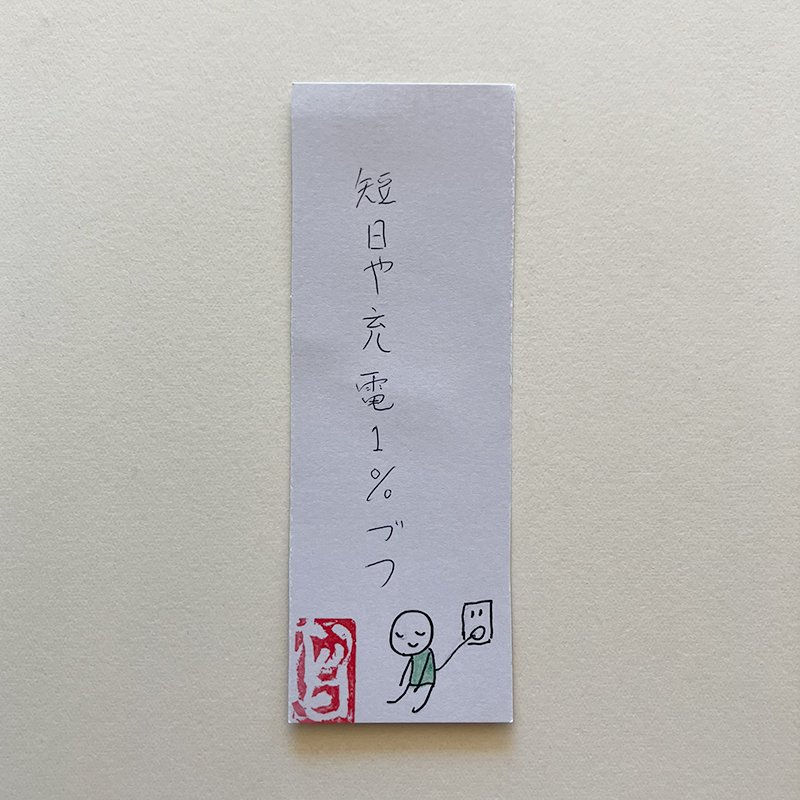 短日や充電1%づつ